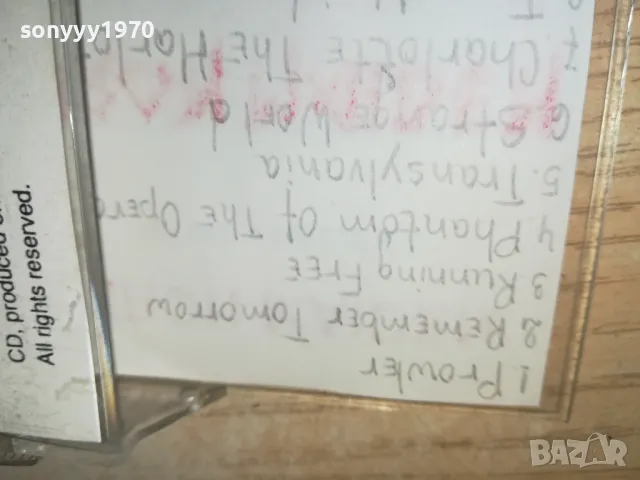 sonyyy1970
1 Prowler
2 Remember Tomorrow
3 Running Free
4 Phantom Of The Opera
5. Transylvania
6 Strange World
7 Charlotte The Harlo
CD, produced
All rights reserved.
BAZAR
bg